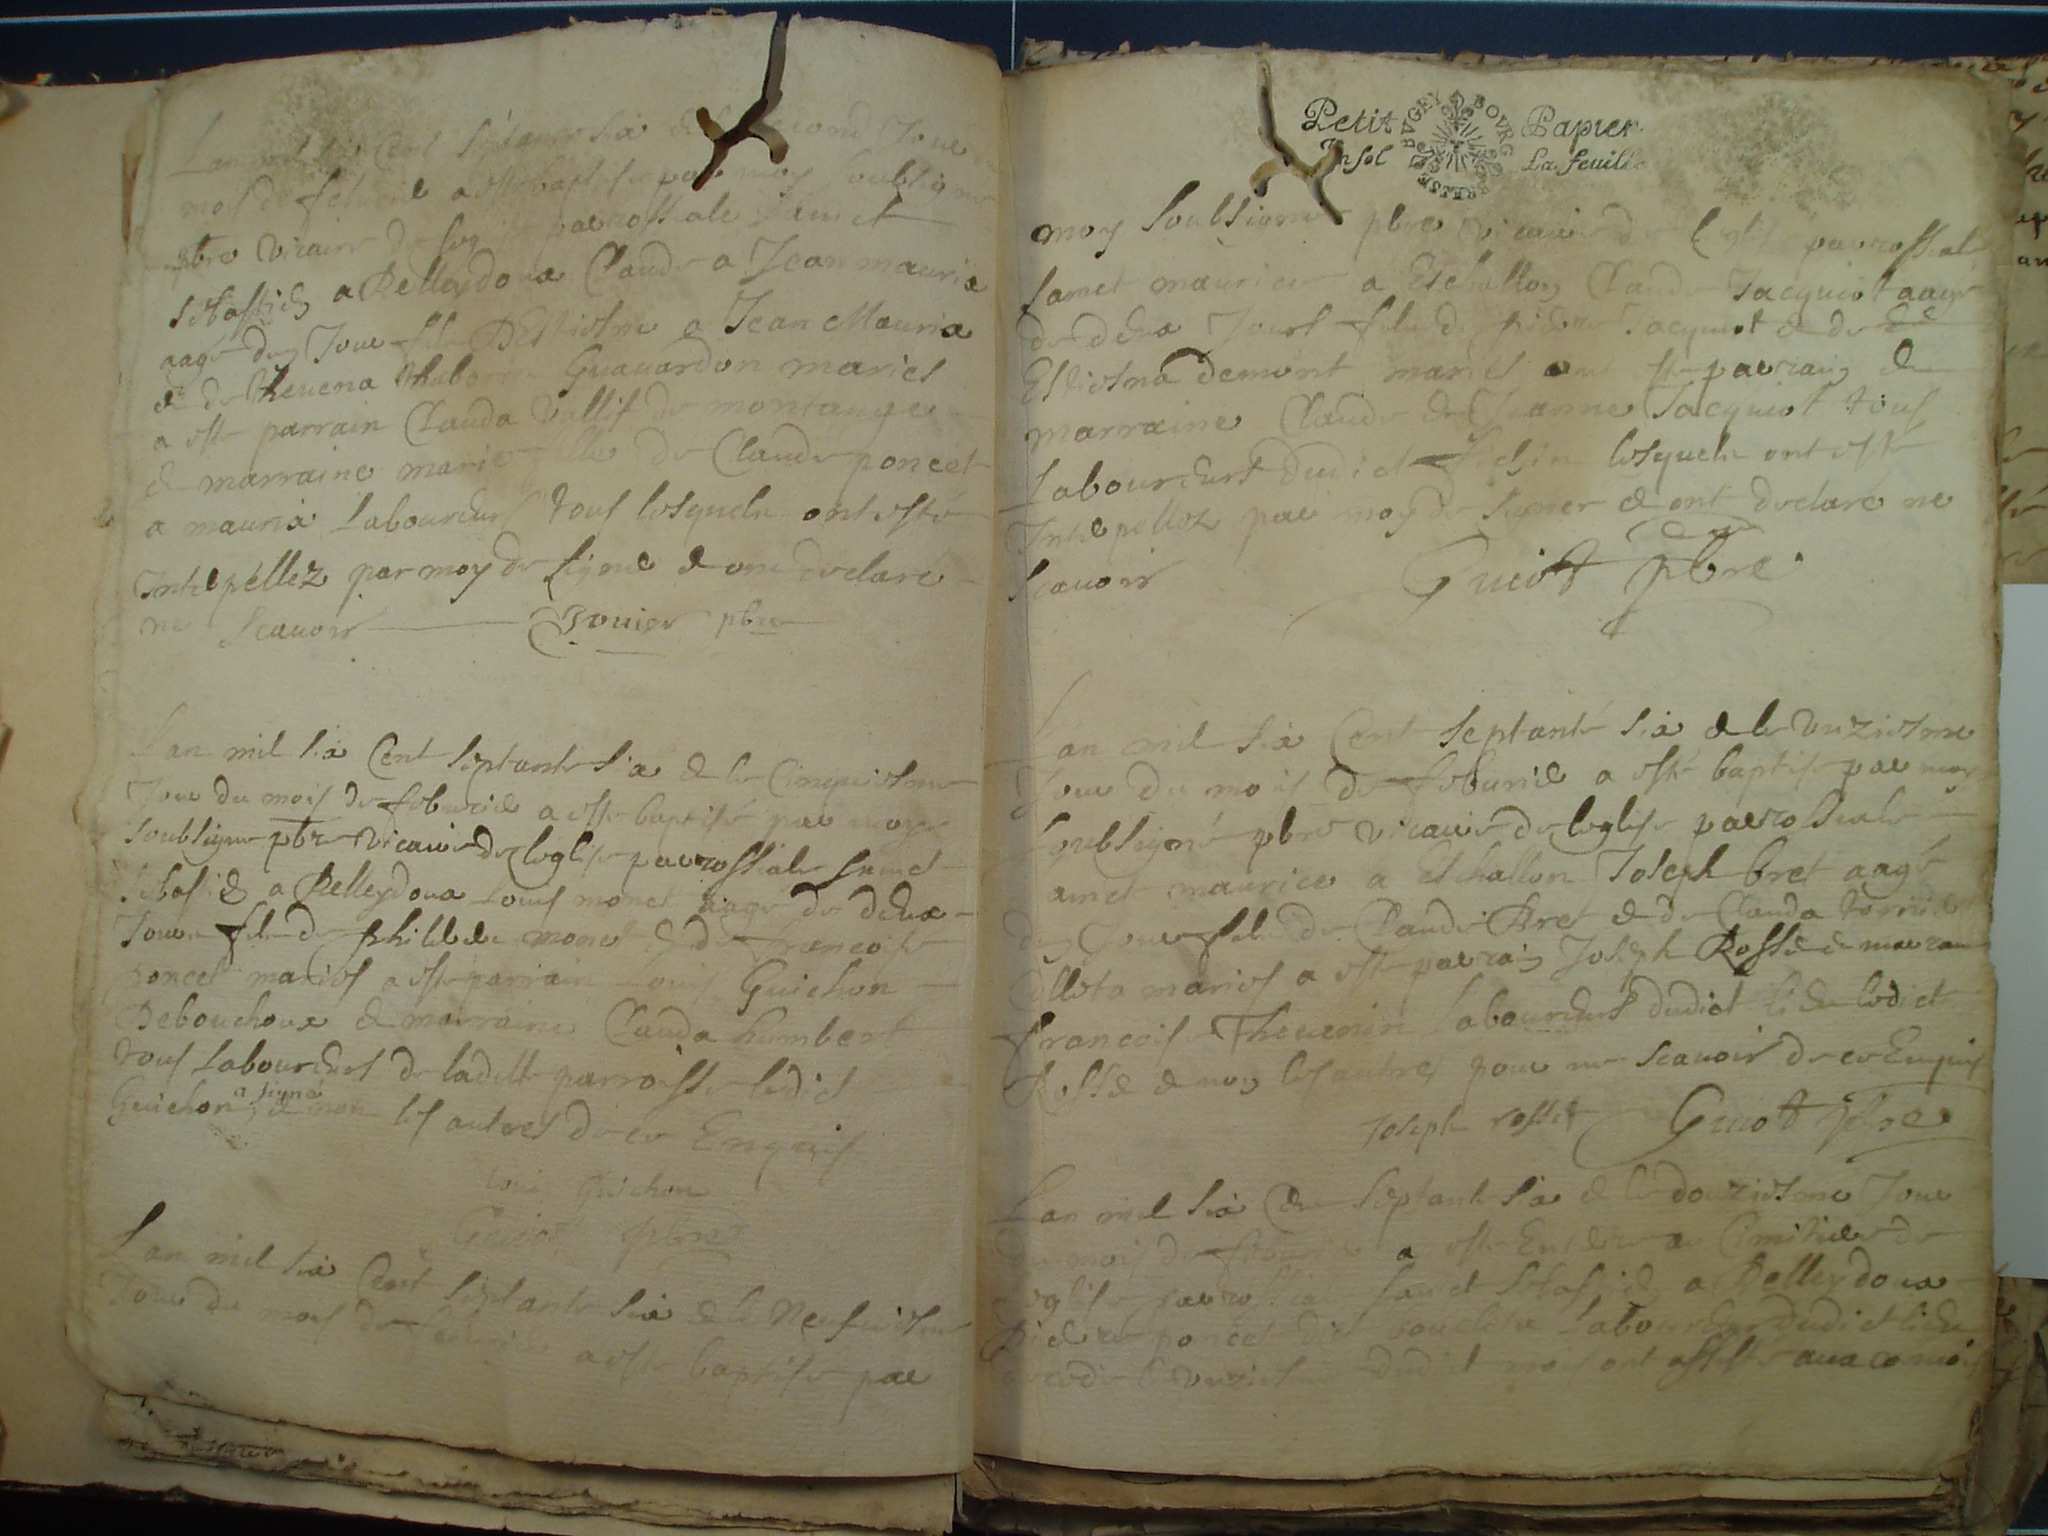 Lan mil six Cent septante six & le second Jour
mois de febvrier a este baptise par moy soubsigne
pbre vicaire de parrossiale sainct
sebastien a Belleydoux Claude a Jean mauris
aage dun Jour fils DEstiesne a Jean Mauris
& de thevena Guavardon maries
a este parrain Clauda vallif de montange
& marraine marie fille de Claude poncet
a mauris laboureurs tous lesquels ont este
Interpellez par moy de signer & ont declare
ne scavoir pbre
Lan mil six Cent septante six & le Cinquiesme
Jour du mois de febvrier a este baptise par moy
soubsigne pbre vicaire de leglise parrossiale sainct
sebastien a Belleydoux Louis monet aage de deux
Jours fils de philibert monet & de francoise
poncet maries a este parrain Louis Guichon
Debouchoux & marraine Clauda humbert
tous laboureurs de ladite parroisse ledict
Guichon a signé & non les autres de ce Enquis
Loui Guichon
Guiot pbre
Lan mil six Cent septante six & le Neufviesme
Jour du mois de febvrier a este baptise par
Petit Papier
Un sol La feuille
BUGEY BOURG BRESSE
moy soubsigne pbre vicaire de leglise parrossiale
sainct maurice a Eschallon Claude Jacquiot aage
de deux Jours fils de pierre Jacquiot & de
Estiesna demont maries ont este parrain &
marraine Claude & Jeanne Jacquiot tous
laboureurs dudict lesquels ont esté
Interpellez par moy de signer & ont declaré ne
scavoir Guiot pbre
Lan mil six Cent septante six & le unziesme
Jour du mois de febvrier a esté baptise par moy
soubsigné pbre vicaire de leglise parrossiale
sainct maurice a Eschallon Joseph bret aagé
dun Jour fils de Claude Bret & de Clauda
maries a este parrain Joseph Rosset & marraine
francoise Thevenin laboureurs dudict lieu ledict
Rosset & non les autres pour ne scavoir de ce Enquis
Joseph rosset Guiot pbre
Lan mil six Cent septante six & le douziesme Jour
du mois de febvrier a este Enterre au Cimitiere de
leglise parrossiale sainct sebastien a Belleydoux
pierre poncet dict laboureur dudict lieu
decede le unziesme dudict mois ont assisté aux convois